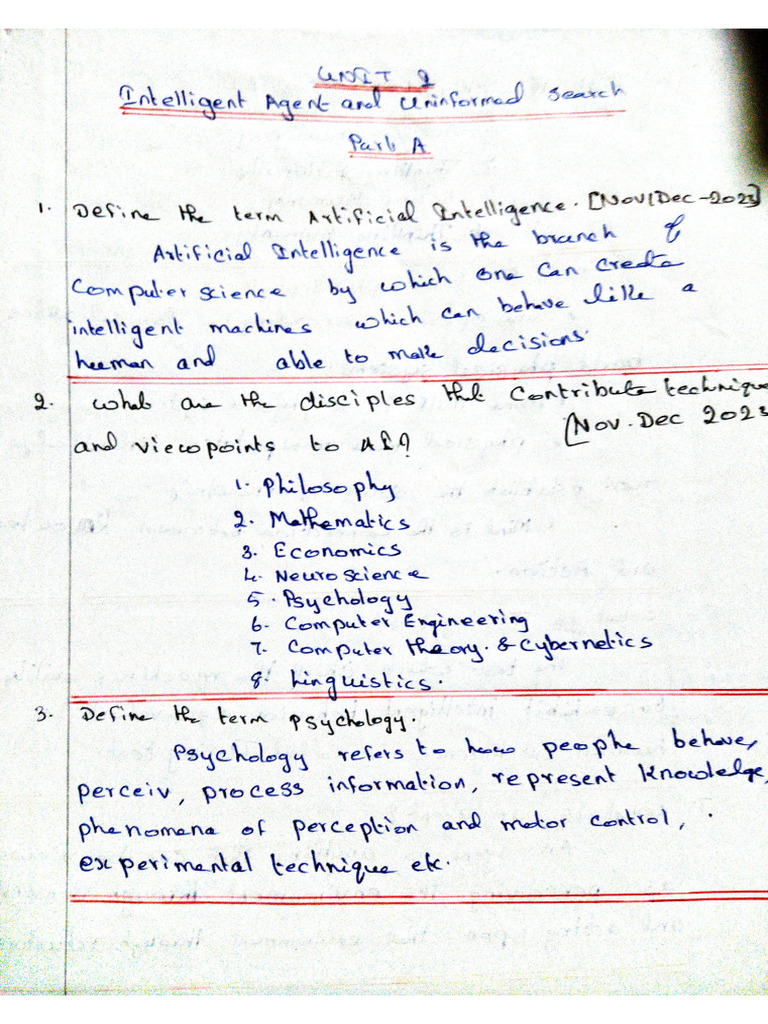 UNIT I
Intelligent Agent and Uninformed Search
Part A
1. Define the term Artificial Intelligence. [Nov/Dec-2023]
Artificial Intelligence is the branch of
Computer science by which one can create
intelligent machines which can behave like a
human and able to make decisions.
2. What are the disciples that contribute technique
and viewpoints to AI? [Nov.Dec 2023
1. Philosophy
2. Mathematics
3. Economics
4. Neuroscience
5. Psychology
6. Computer Engineering
7. Computer theory. & Cybernetics
8. Linguistics.
3. Define the term psychology.
Psychology refers to how peophe behave,
perceiv, process information, represent knowledge,
phenomena of perception and motor control,
experimental technique etc.